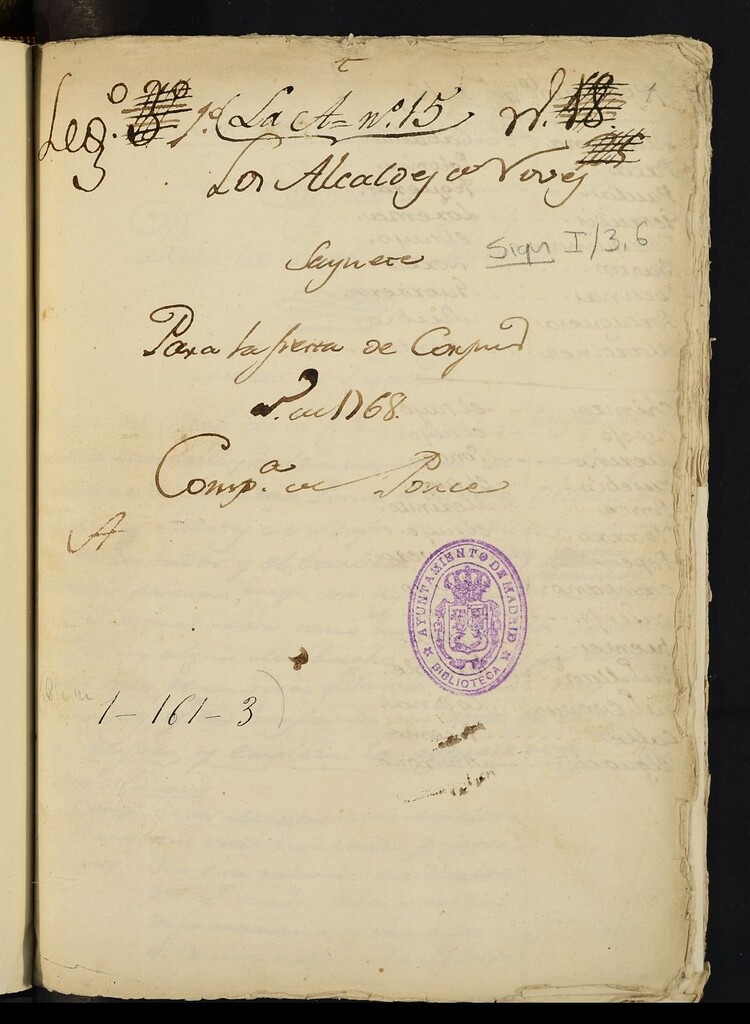 Leg.º 3 La A= nº. 15 N.
Los Alcaldes de Noves
Saynete
Sign I/3,6
Para la fiesta de Corpus
de 1768.
Comp.ª de Ponce
A
AYUNTAMIENTO DE MADRID
BIBLIOTECA
1-161-3